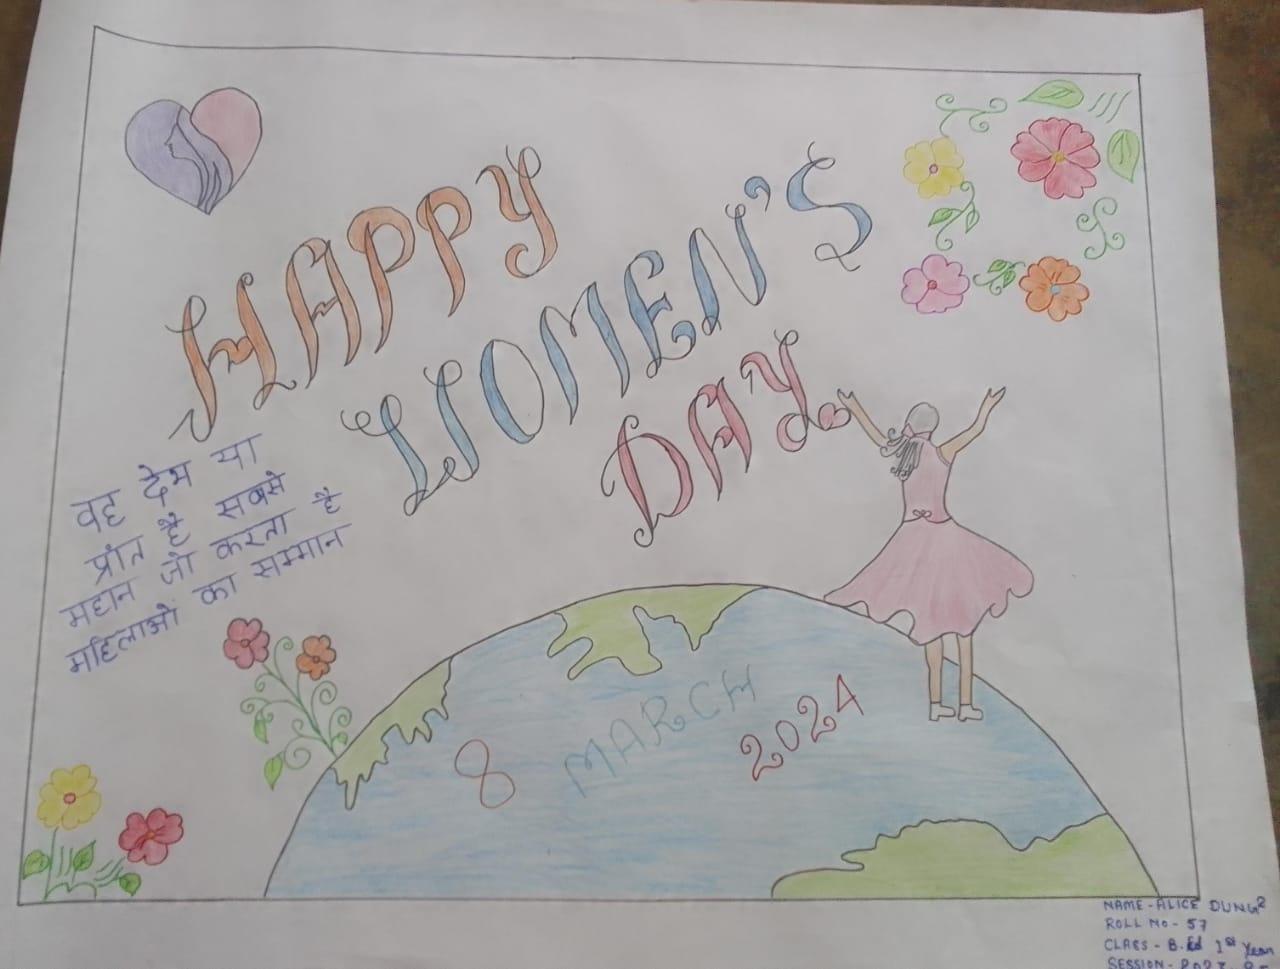 HAPPY
WOMEN'S
DAY
वह देश या
प्रांत है सबसे
महान जो करता है
महिलाओं का सम्मान
8 MARCH 2024
NAME - ALICE
ROLL NO - 57
CLASS - B.Ed 1st Year
SESSION -